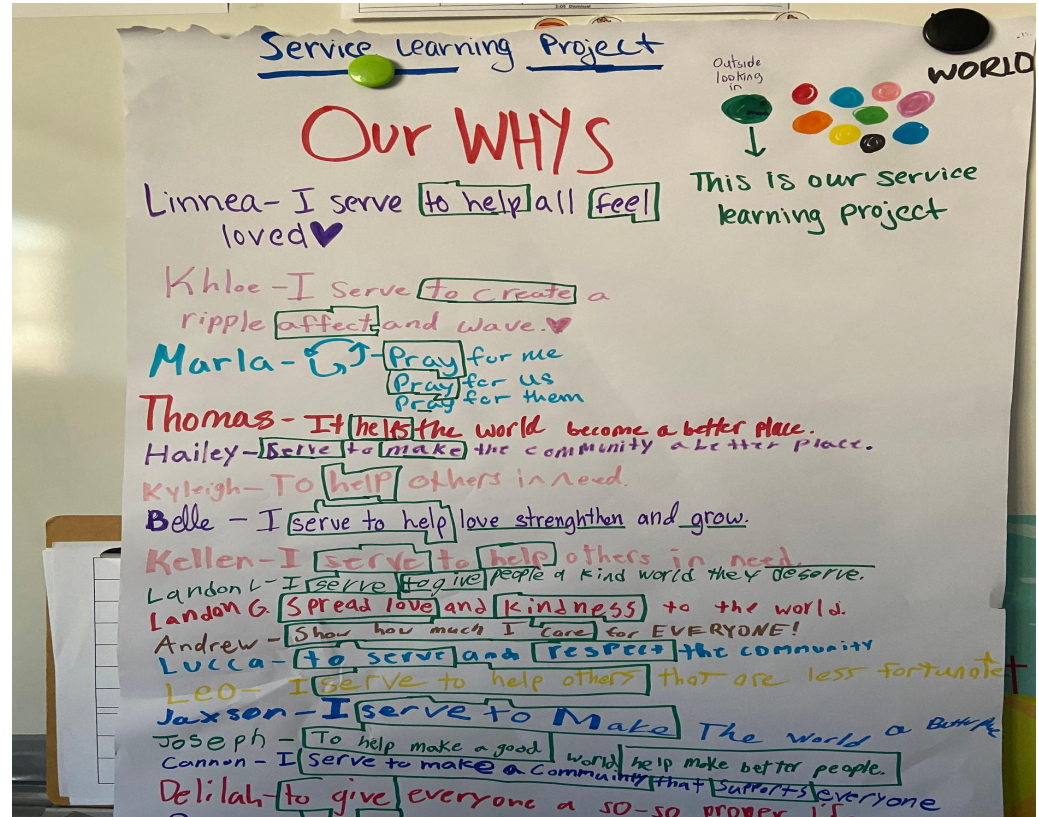 Service Learning Project
Outside
looking
in
WORLD
Our WHYS
This is our service
learning project
Linnea- I serve to help all feel
loved
Khloe - I serve to create a
ripple affect and wave.
Marla- Pray for me
Pray for us
Pray for them
Thomas- It helps the world become a better place.
Hailey- Serve to make the community a better place.
Kyleigh- To help others in need.
Belle - I serve to help love strenghthen and grow.
Kellen- I serve to help others in need.
Landon L- I serve to give people a kind world they deserve.
Landon G. Spread love and kindness to the world.
Andrew - Show how much I care for EVERYONE!
Lucca- to serve and respect the community
Leo- I serve to help others that are less fortunate
Jaxson- I serve to Make The world a
Joseph - To help make a good world help make better people.
Cannon - I serve to make a community that supports everyone
Delilah- to give everyone a so-so proper